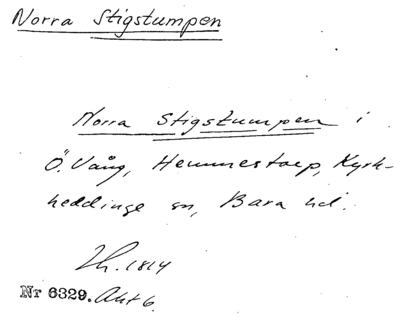 Norra Stigstumpen
Norra Stigstumpen i
Ö. Vång, Hemmestorp, Kyrk-
heddinge sn, Bara hd.
Lh. 1814
Nr 6329. Akt 6.